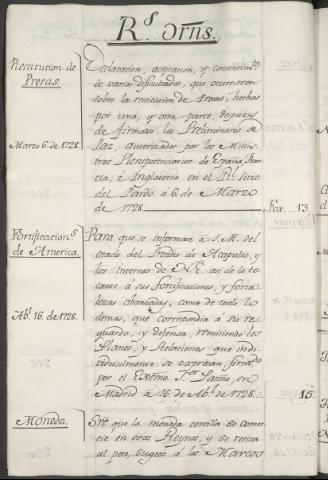 R.s Orns.
Restitucion de
Presas.
Marzo 6. de 1728.
Declaracion, aceptacion, y convenim.to
de varias dificultades, que ocurrieron
sobre la restitucion de Presas, hechas
por una, y otra parte, despues
de firmados los Preliminares de
Paz, autorizados por los Minis-
tros Plenipotenciarios de España, Fran-
cia, è Inglaterra en el R.l Sitio
del Pardo à 6. de Marzo
de 1728. Fox....13.
Fortificacion.s
de America.
Ab.l 16. de 1728.
Para que se informase à S. M. del
estado del Presidio de Acapulco, y
los Internos de N. E. asi de lo to-
cante à sus fortificaciones, y forta-
lezas abanzadas, como de todo lo
demas, que correspondia à su res-
guardo, y defensa, remitiendo los
Planos, y Relaciones que indi-
vidualmente se expresan, firm.do
por el Exc̃mo. S.or Patiño, en
Madrid à 16. de Ab.l de 1728. 15.
Moneda.
Sre. que la moneda sencilla se comer-
cie en estos Reynos, y se reciva
al peso, sugeto à los Marcos